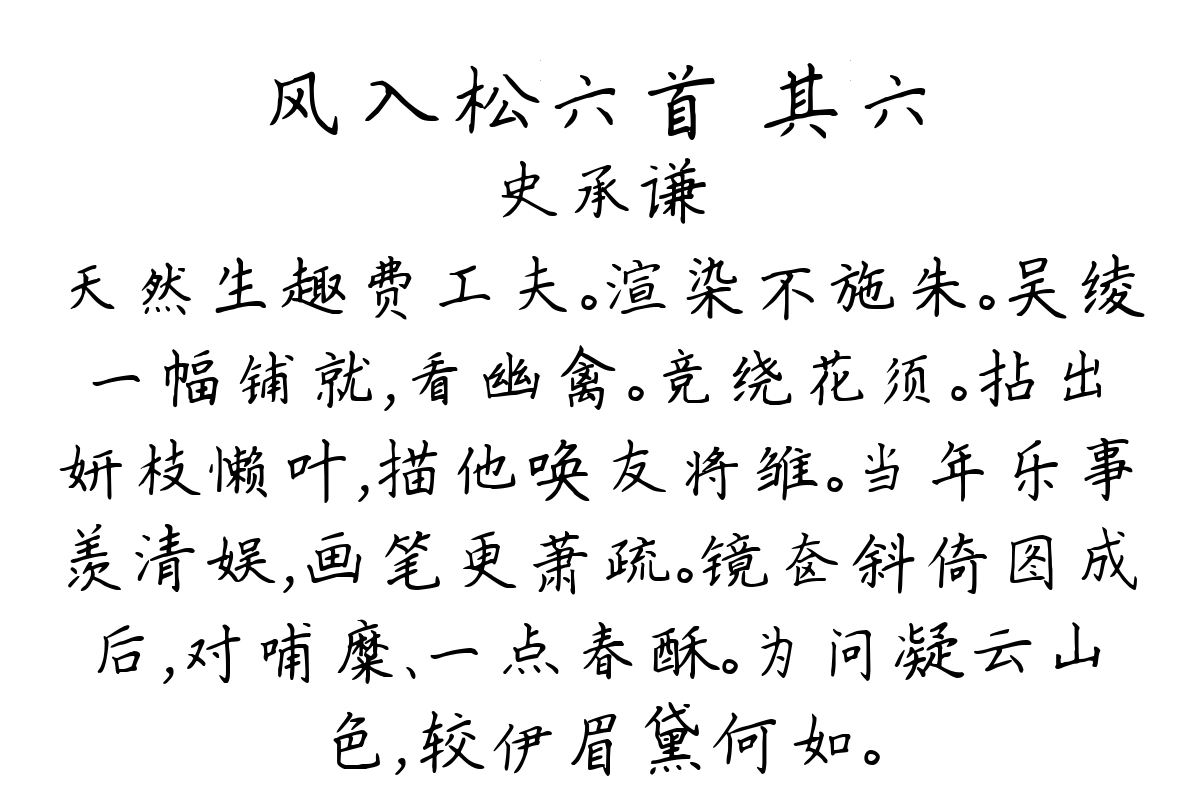 风入松六首 其六
史承谦
天然生趣费工夫。渲染不施朱。吴绫
一幅铺就,看幽禽。竞绕花须。拈出
妍枝懒叶,描他唤友将雏。当年乐事
羡清娱,画笔更萧疏。镜奁斜倚图成
后,对哺糜、一点春酥。为问凝云山
色,较伊眉黛何如。